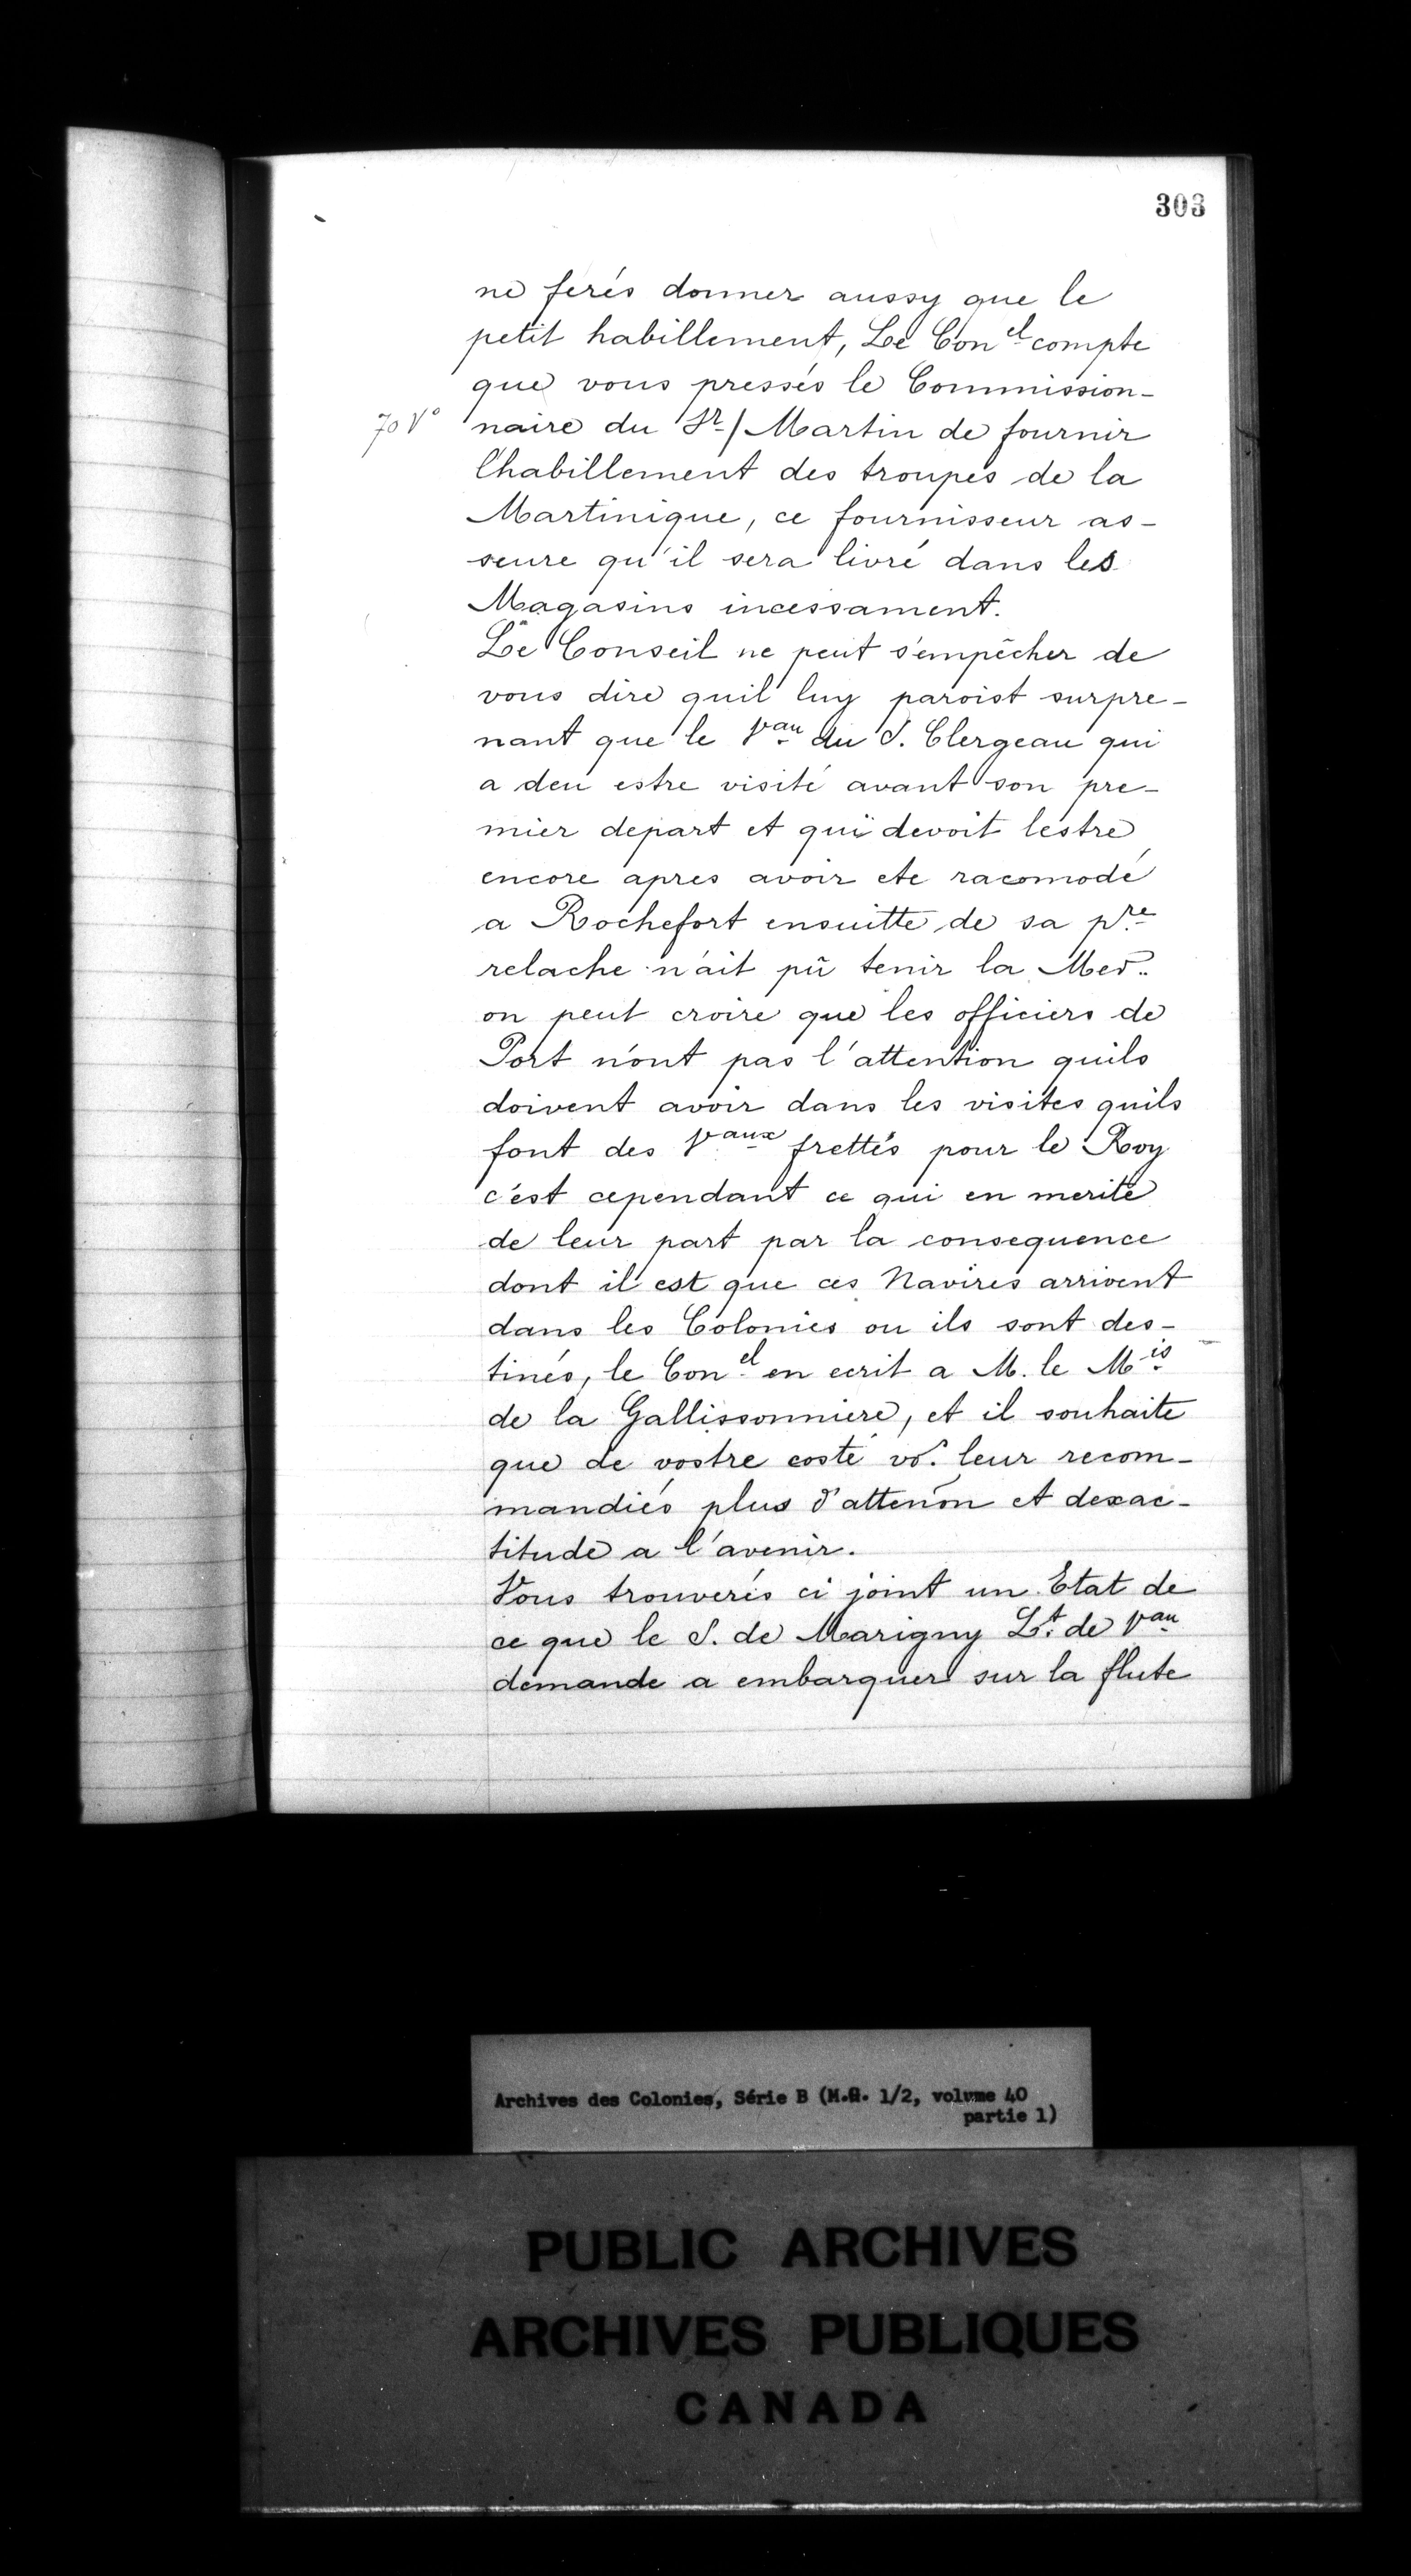 303
ne ferés donner aussy que le
petit habillement, Le Con.el compte
que vous pressés le Commission-
70 V° naire du Sr/ Martin de fournir
l'habillement des troupes de la
Martinique, ce fournisseur as-
seure qu'il sera livré dans les
Magasins incessament.
Le Conseil ne peut s'empêcher de
vous dire quil luy paroist surpre-
nant que le V.au du S. Clergeau qui
a deu estre visité avant son pre-
mier depart et qui devoit lestre
encore apres avoir ete racomodé
a Rochefort ensuitte de sa p.re
relache n'ait pû tenir la Mer..
on peut croire que les officiers de
Port n'ont pas l'attention quils
doivent avoir dans les visites quils
font des V.aux frettés pour le Roy
c'est cependant ce qui en merite
de leur part par la consequence
dont il est que ces Navires arrivent
dans les Colonies ou ils sont des-
tinés, le Con.el en ecrit a M. le M.is
de la Gallissonniere, et il souhaite
que de vostre costé vo.s leur recom-
mandiés plus d'atten͠on et dexac-
titude a l'avenir.
Vous trouverés ci joint un Etat de
ce que le S. de Marigny L.t de V.au
demande a embarquer sur la flute
Archives des Colonies, Série B (M.G. 1/2, volume 40
partie 1)
PUBLIC ARCHIVES
ARCHIVES PUBLIQUES
CANADA